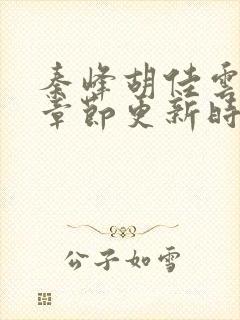 秦峰胡佳雲
章節更新時
公子如雪